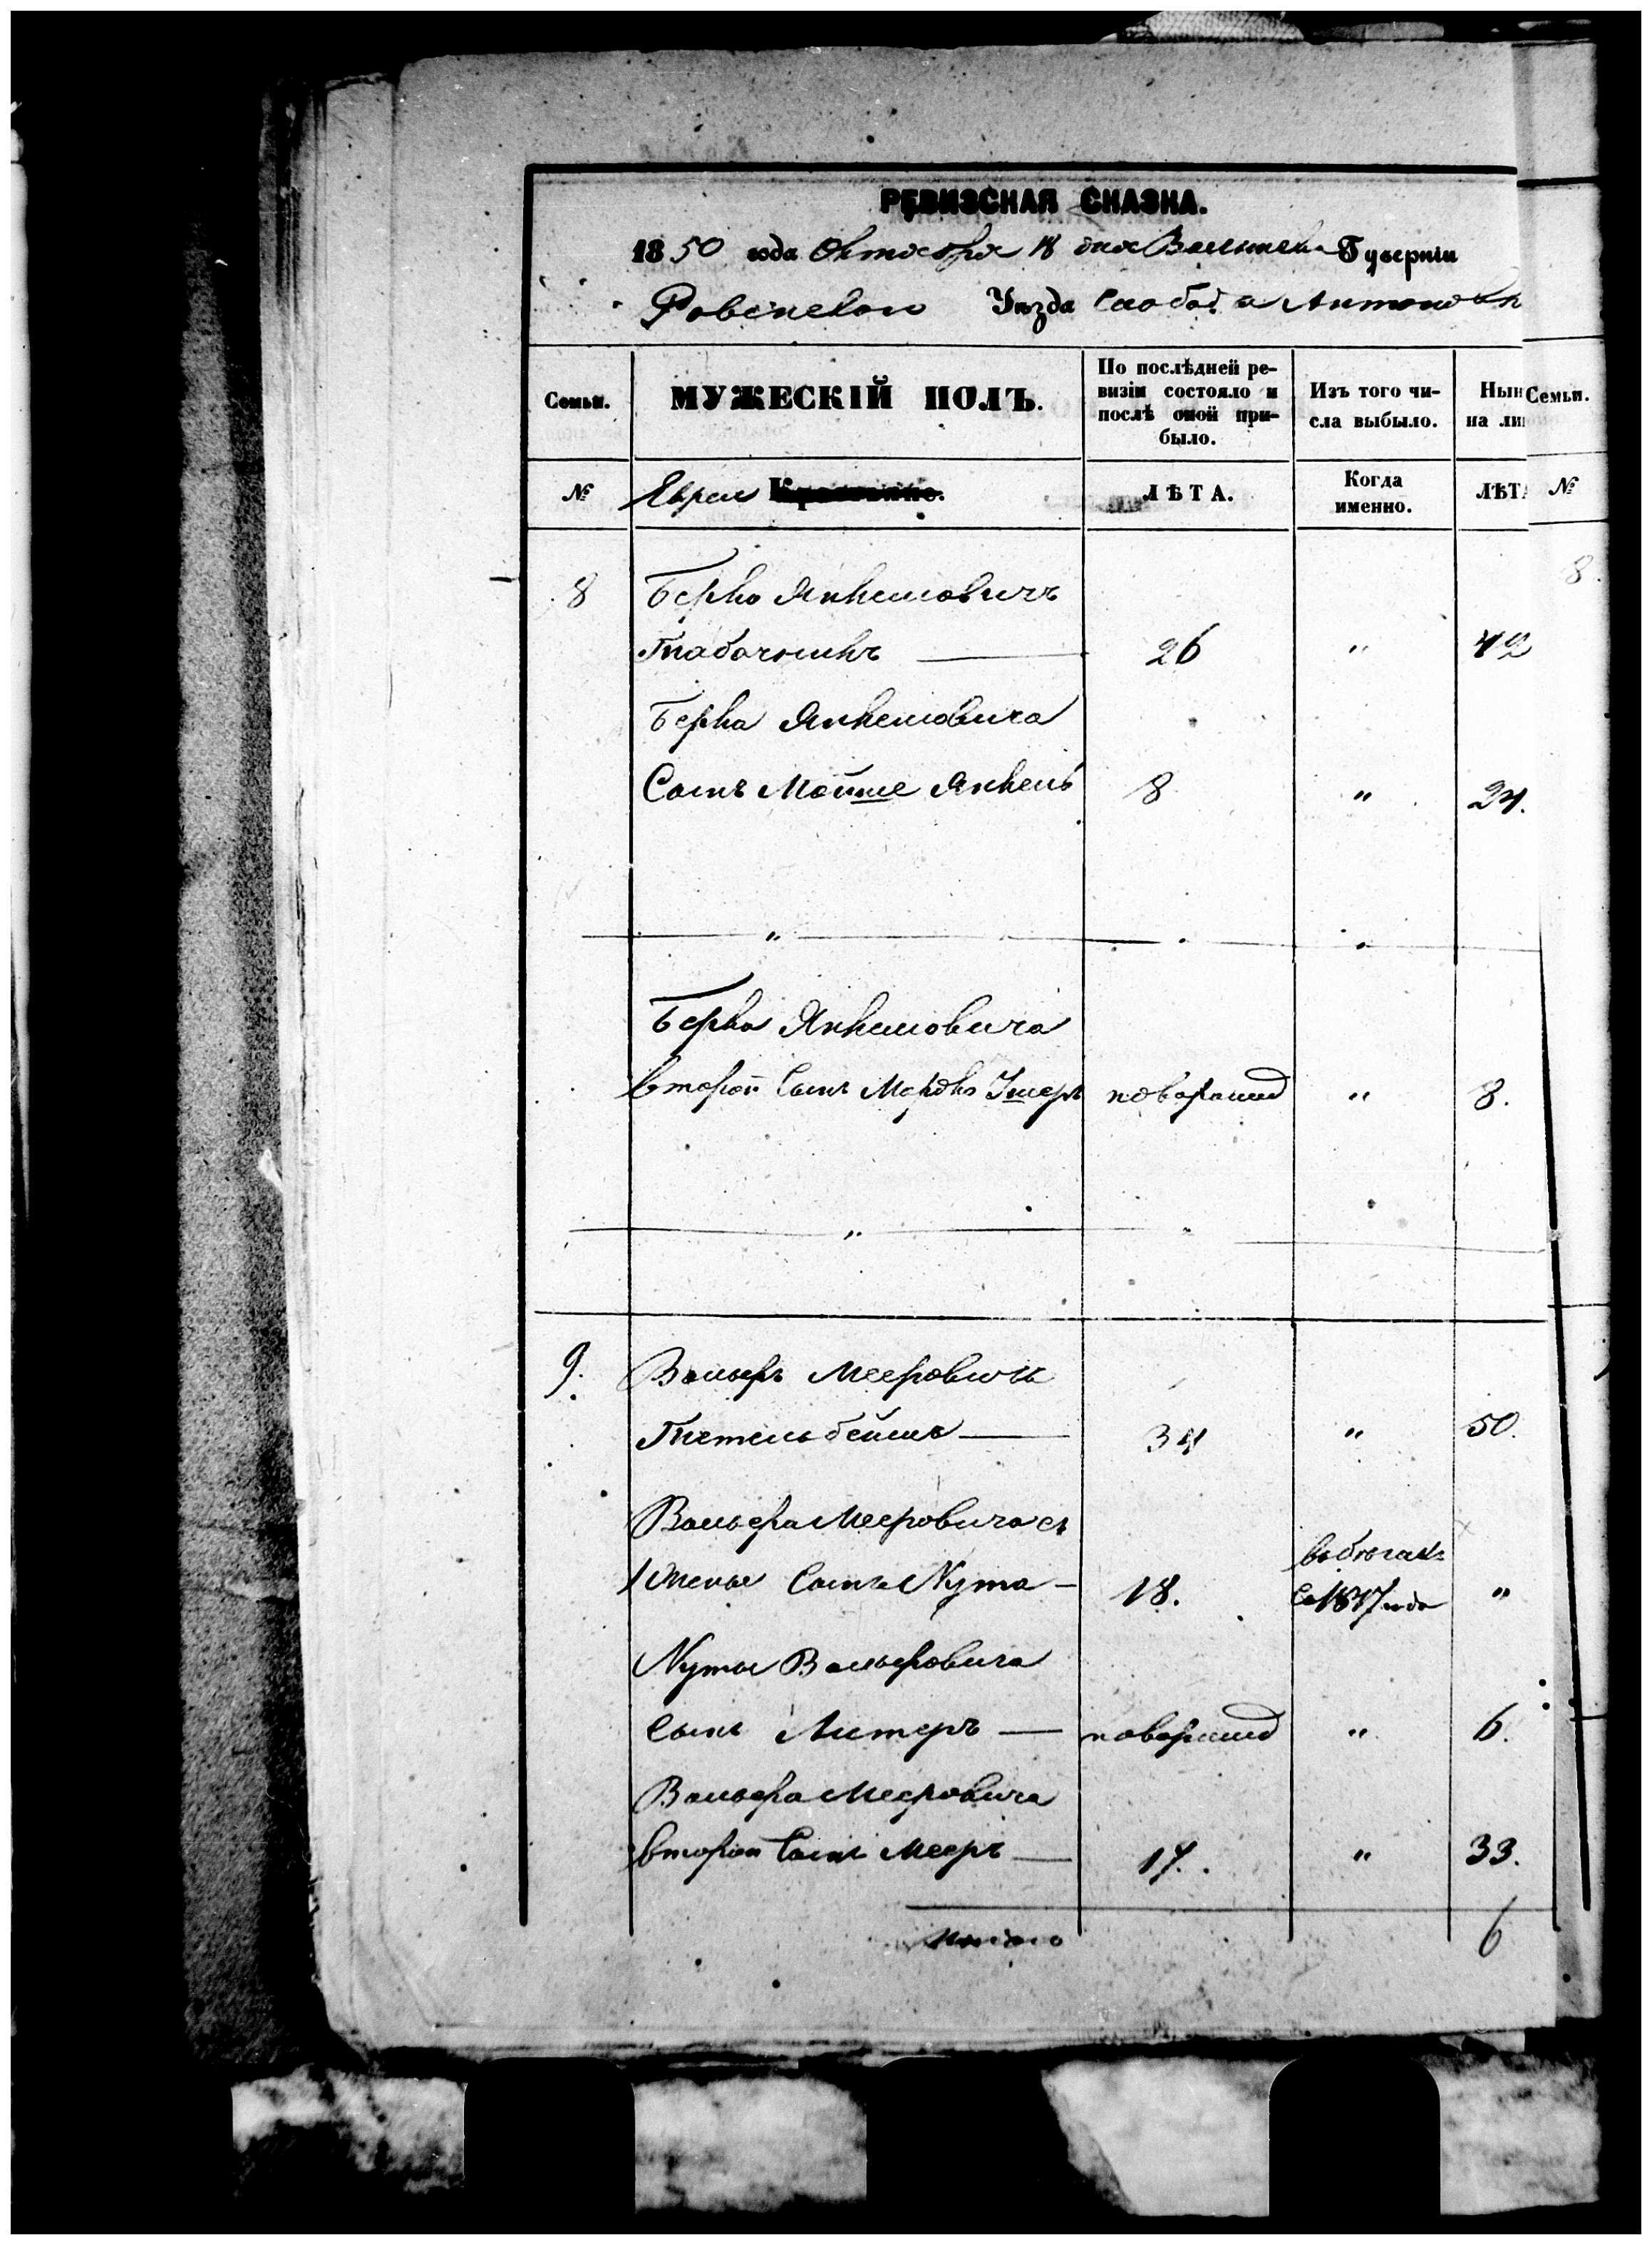 РЕВИЗСКАЯ СКАЗКА.
1850 года Октября 18 дня Волынской Губерніи
Ровенскаго Уѣзда Слобода
Семьи.
МУЖЕСКІЙ ПОЛЪ.
По послѣдней ре-
визіи состояло и
послѣ оной при-
было.
Изъ того чи-
сла выбыло.
Нын
на ли
Семьи.
№ Евреи ЛѢТА. Когда
именно.
ЛѢТ №
8 Берко Янкелевичъ 8
Табачникъ — 26 " 42
Берка Янкелевича
Сынъ Мойше Янкель 8 " 24.
" " "
Берка Янкелевича
второй Сынъ Мордко новорожд " 8.
" "
9. Вольфъ Мееровичъ
— 34 " 50.
Вольфа Мееровича съ
1 жены Сынъ Нута — 18. въ бѣгахъ
съ 1847 года "
Нуты Вольфовича
Сынъ Литеръ — новорожд " 6.
Вольфа Мееровича
второй Сынъ Мееръ — 17. " 33.
Итого 6